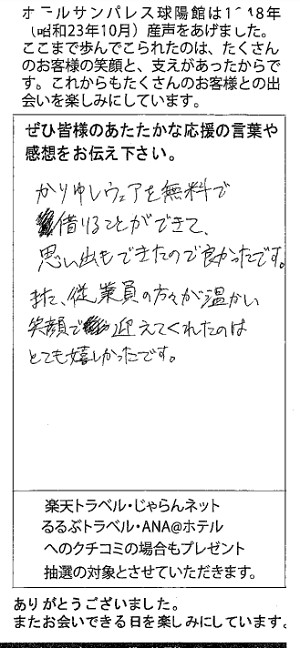 オールサンパレス球陽館は1948年
（昭和23年10月）産声をあげました。
ここまで歩んでこられたのは、たくさん
のお客様の笑顔と、支えがあったからで
す。これからもたくさんのお客様との出
会いを楽しみにしています。
ぜひ皆様のあたたかな応援の言葉や
感想をお伝え下さい。
かりゆしウェアを無料で
借りることができて、
思い出もできたので良かったです。
また、従業員の方々が温かい
笑顔で迎えてくれたのは
とても嬉しかったです。
楽天トラベル・じゃらんネット
るるぶトラベル・ANA@ホテル
へのクチコミの場合もプレゼント
抽選の対象とさせていただきます。
ありがとうございました。
またお会いできる日を楽しみにしています。